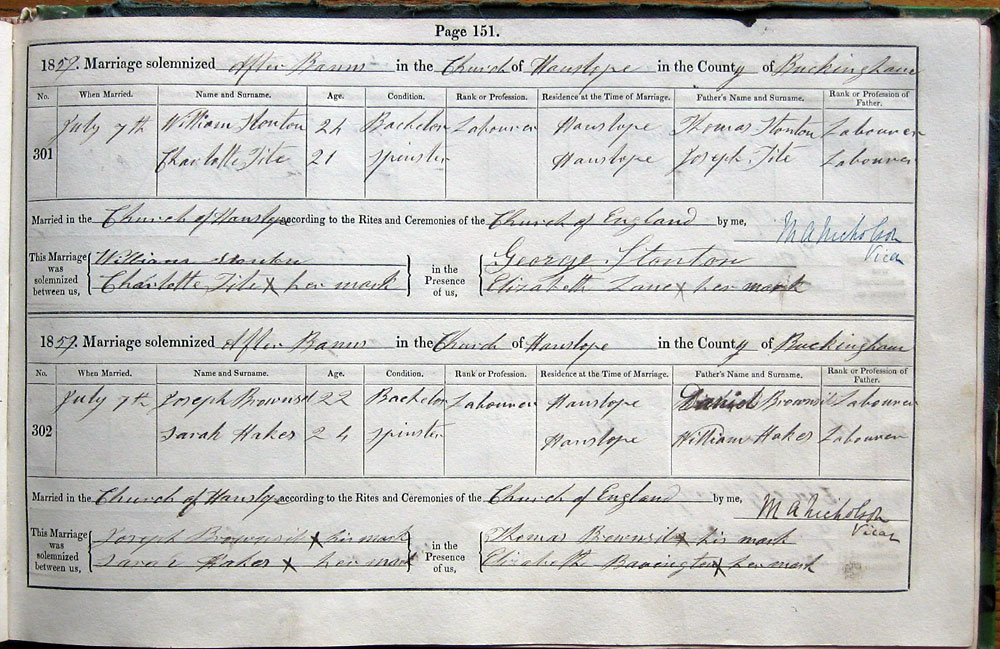 Page 151.
1857. Marriage solemnized After Banns in the Church of Hanslope in the County of Buckingham
No. When Married. Name and Surname. Age. Condition. Rank or Profession. Residence at the Time of Marriage. Father's Name and Surname. Rank or Profession of Father.
301 July 7th William Stonton 24 Bachelor Labourer Hanslope Thomas Stonton Labourer
Charlotte Tite 21 Spinster Hanslope Joseph Tite Labourer
Married in the Church of Hanslope according to the Rites and Ceremonies of the Church of England by me, M A Nicholson Vicar
This Marriage was solemnized between us, William Stonton
Charlotte Tite X her mark
in the Presence of us, George Stonton
Elizabeth Lane X her mark
1857. Marriage solemnized After Banns in the Church of Hanslope in the County of Buckingham
No. When Married. Name and Surname. Age. Condition. Rank or Profession. Residence at the Time of Marriage. Father's Name and Surname. Rank or Profession of Father.
302 July 7th Joseph Brownsil 22 Bachelor Labourer Hanslope Daniel Brownsil Labourer
Sarah Hakes 24 Spinster Hanslope William Hakes Labourer
Married in the Church of Hanslope according to the Rites and Ceremonies of the Church of England by me, M A Nicholson Vicar
This Marriage was solemnized between us, Joseph Brownsil X his mark
Sarah Hakes X her mark
in the Presence of us, Thomas Brownsil X his mark
Elizabeth X her mark